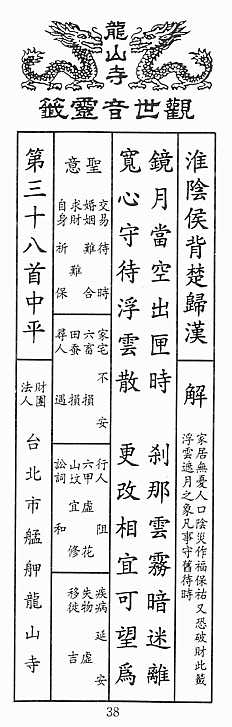 龍山寺
觀世音靈籤
淮陰侯背楚歸漢
解
家居無憂人口陰災作福保祐又恐破財此籤
浮雲遮月之象凡事守舊待時
鏡月當空出匣時 剎那雲霧暗迷離
寬心守待浮雲散 更改相宜可望爲
聖意
交易 待時
婚姻 難合
求財 難
自身 祈保
家宅 不安
六畜 損
田蚕 損
尋人 遇
行人 阻
六甲 虛花
山坟 宜修
訟詞 和
疾病 延安
失物 虛
移徙 吉
第三十八首中平
財團法人
台北市艋舺龍山寺
38